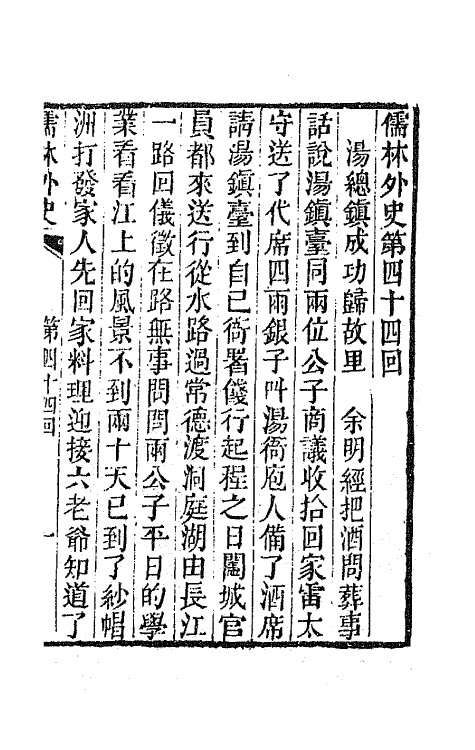 儒林外史第四十四回
湯總鎮成功歸故里　余明經把酒問葬事
話說湯鎮臺同兩位公子商議收拾回家雷太
守送了代席四兩銀子叫湯衙庖人備了酒席
請湯鎮臺到自己衙署餞行起程之日闔城官
員都來送行從水路過常德渡洞庭湖由長江
一路回儀徵在路無事問問兩公子平日的學
業看看江上的風景不到兩十天已到了紗帽
洲打發家人先回家料理迎接六老爺知道了
儒林外史
第四十四回
一